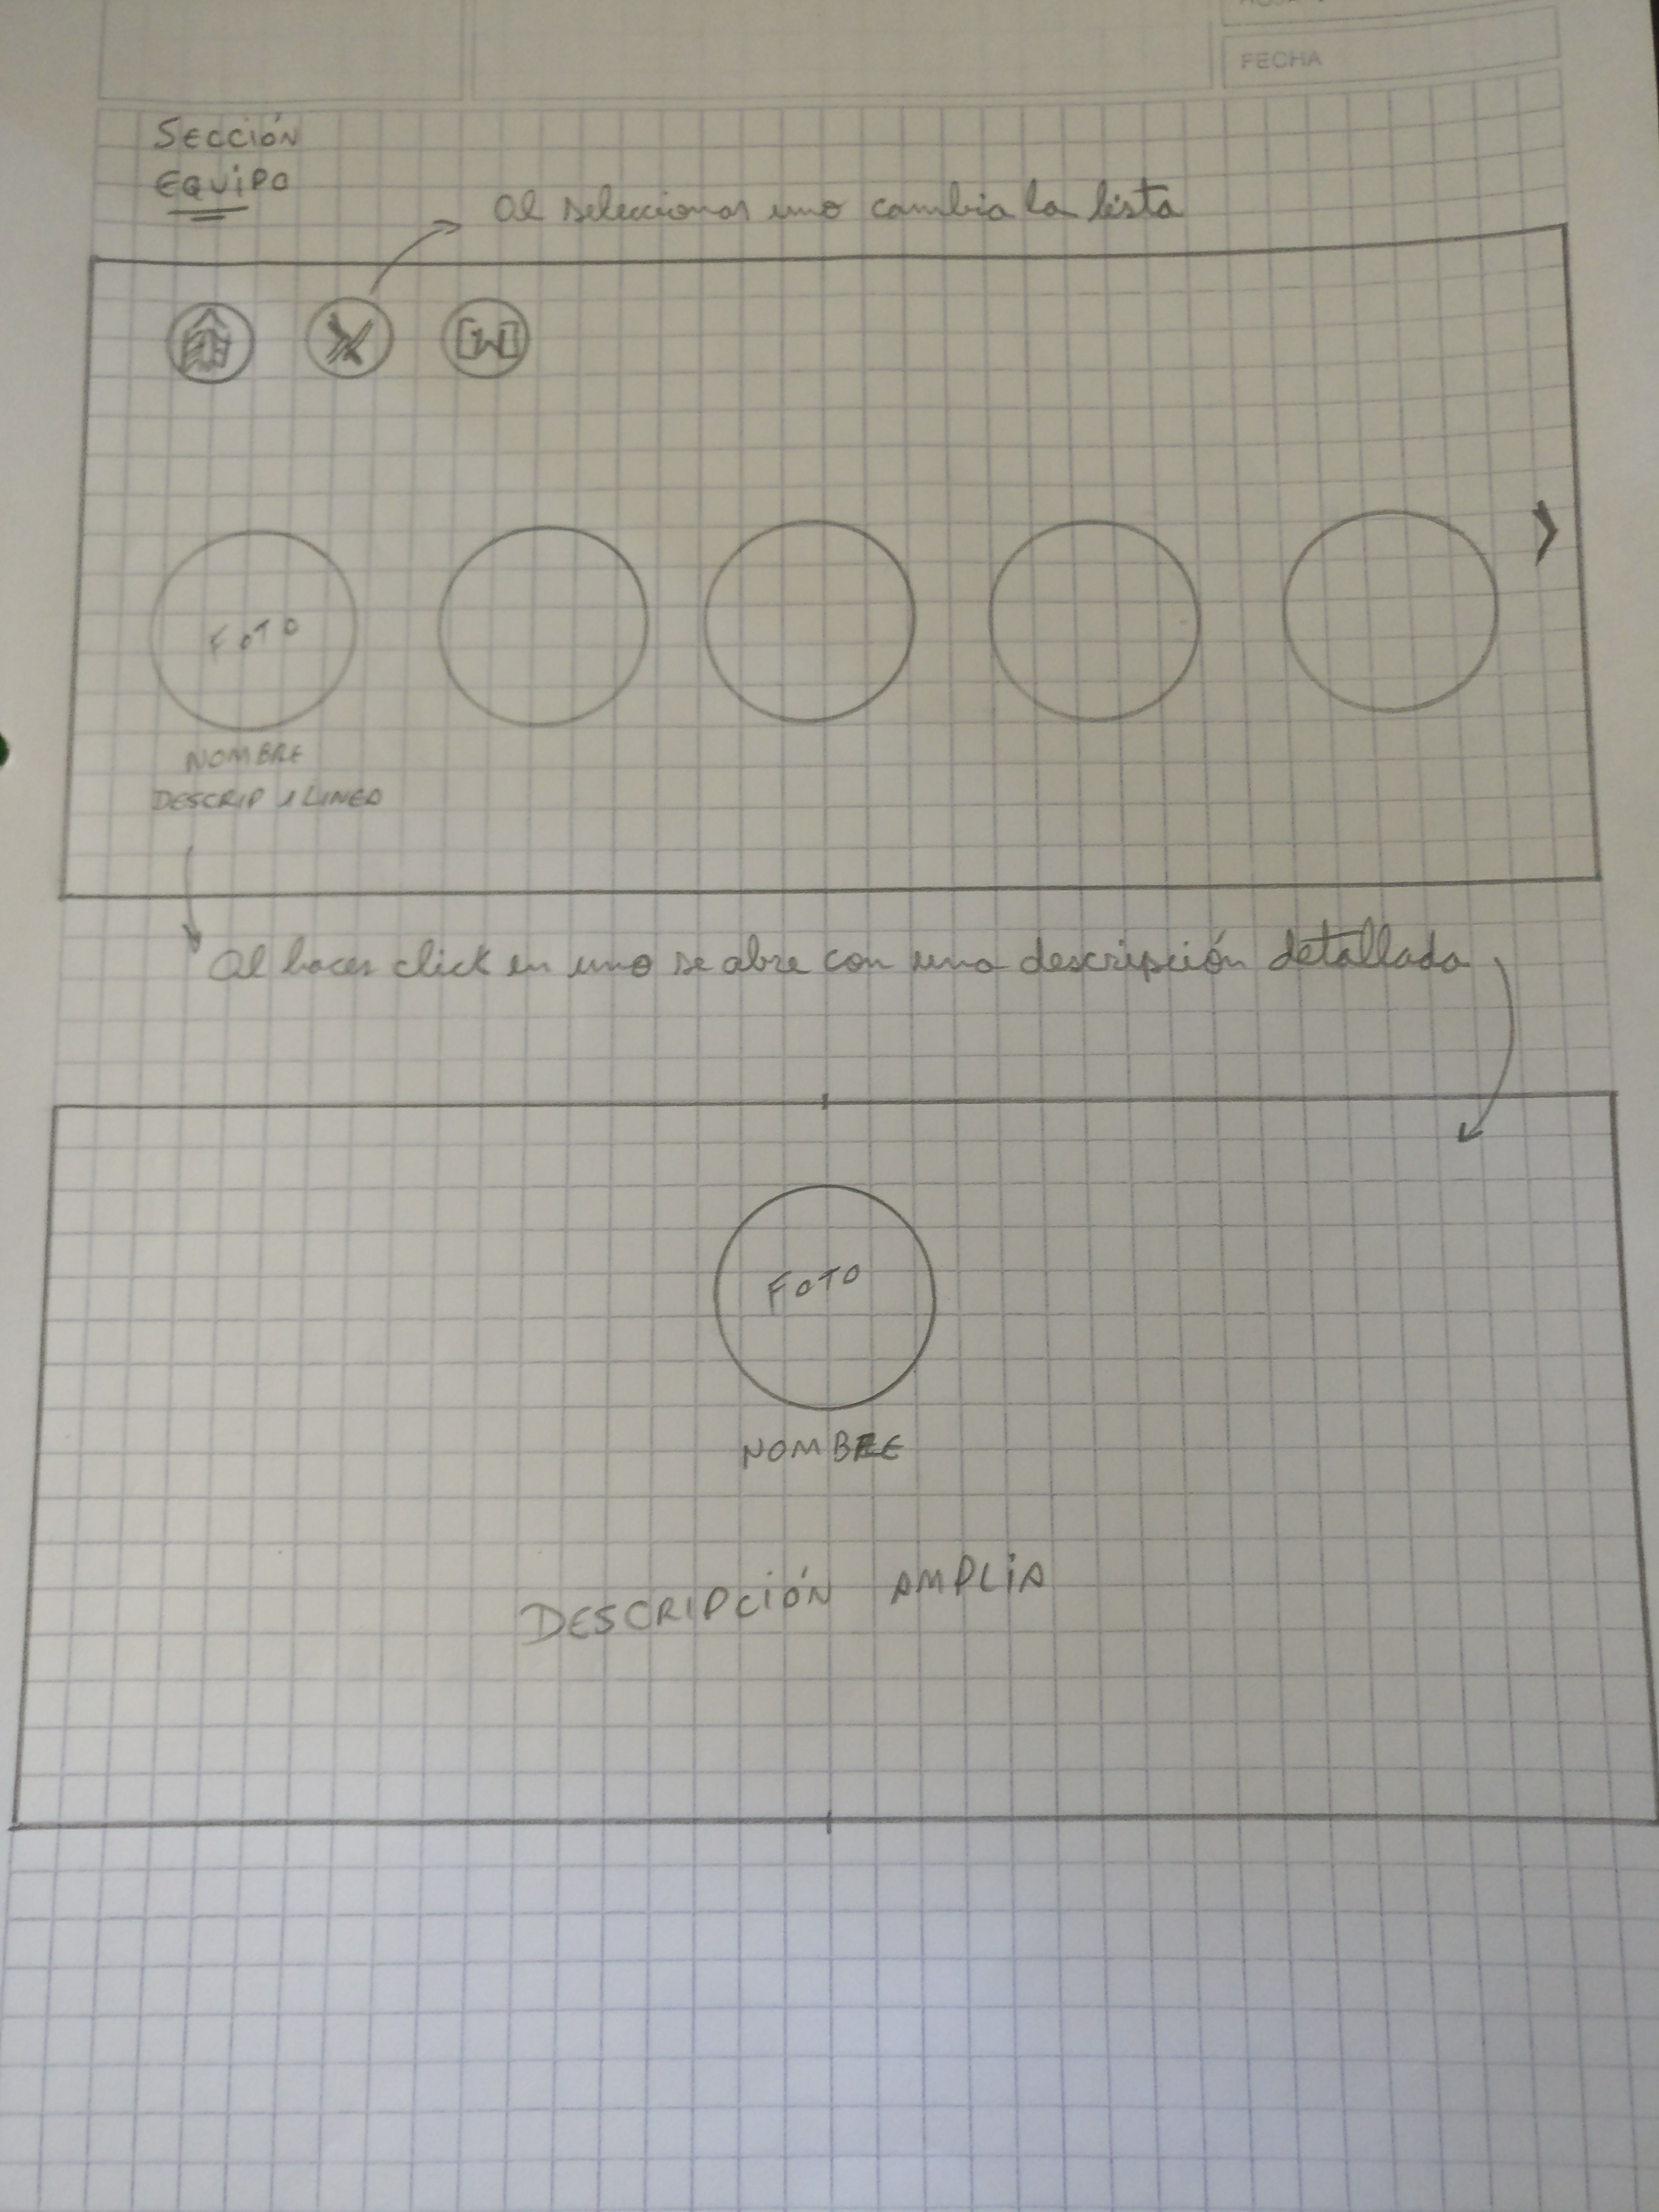 FECHA
SECCIÓN
EQUIPO
Al seleccionar uno cambia la lista
[W]
FOTO
NOMBRE
DESCRIP 1 LINEA
Al hacer click en uno se abre con una descripción detallada
FOTO
NOMBRE
DESCRIPCIÓN AMPLIA